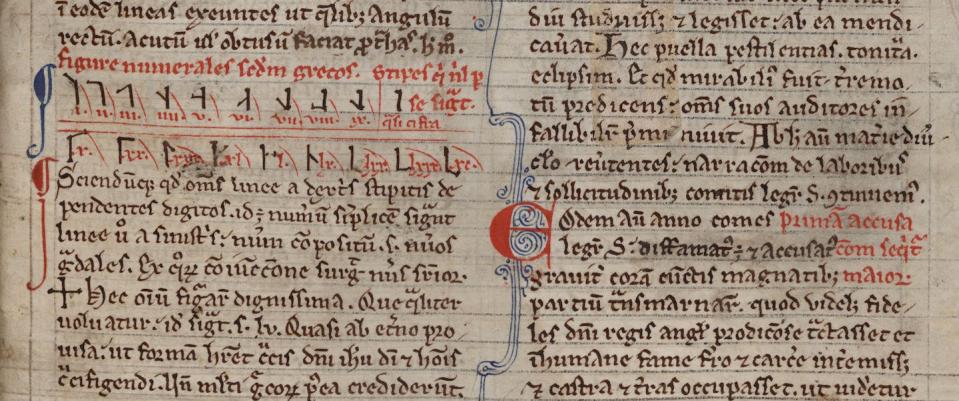 i eodē lineas exeuntes ut q̄lib; Angulū
rectū. acutū ul' obtusū faciat
figure numerales scdm grecos. Stipes
se sig̅t.
i. ii. iii. iiii. v. vi. vii. viii. ix.
q̄si cifra
x. xx. xxx. xl. l. lx. lxx. lxxx. xc.
Sciendūq; qd' om̄s linee a dext̄s stipitis de
pendentes digitos. id; num̄ū sīplicē sig̅ut
linee ū a sinist's; nūm cōpositū. s. nūos
Ex cōiuccōne surg̅
Hec oīū figar̄ dignissima. Que q̄liter
uoluatur. id sig̅t. s. lv. Quasi ab et̄no pro
uisa; ut formā hr̄et c̄cis dn̄i ihū dī ⁊ hōis
c̄cifigendi. Un̄ ml'ti g̅corꝝ p̄ea crediderūt.
diu studuiss; ⁊ legisset; ab ea mendi
cauat. Hec puella pestilentias. tonit̄a.
eclipsim. Et mirabili' fuit t̄remo
tū predicens; om̄s suos auditores in
fallibilit̄ p̄muniuit. Ab h' au̅ mat̄ie diu
reūtentes; narracōm de laborib'
⁊ sollicitudinib; comitis legr̄. S. ꝯtinuem'.
Eodem au̅ anno comes Prima accusa
legr̄. S. diffamat̄; ⁊ accusat̄ com̄
grauit̄ corā cūctis magnatib; maior
partiū t̄nsmarinar̄. quod videl; fide
les dn̄i regis angl' prodicōse t̄ctasset et
īhumane fame fr̄o ⁊ carc̄e īt̄emiss;
⁊ castra ⁊ t̄ras occupasset. ut uidetur